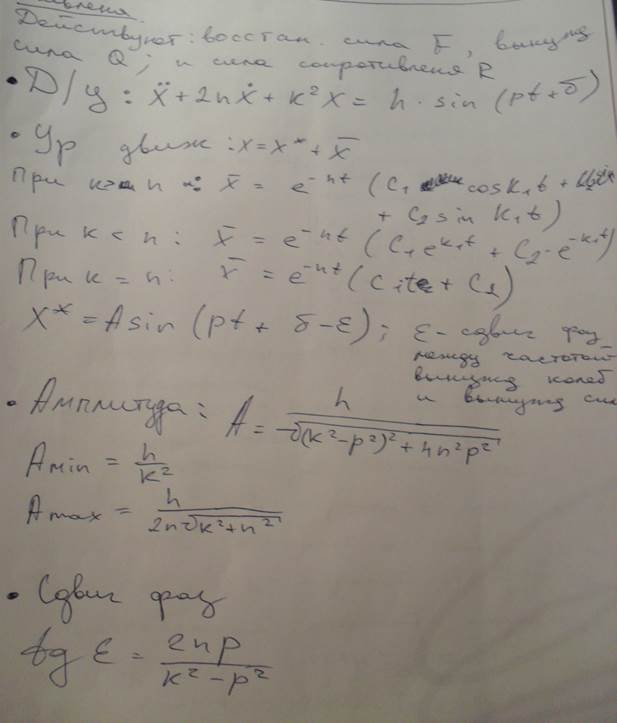 Действуют: восстан. сила F, вынужд
сила Q; и сила сопротивленя R
• Д/у: ẍ + 2nẋ + k²x = h · sin (pt + δ)
• Ур движ: x = x* + x̄
При k > n : x̄ = e^-nt (C₁ cos k₁t +
+ C₂ sin k₁t)
При k < n : x̄ = e^-nt (C₁e^k₁t + C₂ · e^-k₁t)
При k = n: x̄ = e^-nt (C₁t + C₂)
x* = A sin (pt + δ - ε); ε - сдвиг фаз
между частотой
вынужд колеб
и вынужд сил
• Амплитуда: A = h / √(k² - p²)² + 4n²p²
A min = h / k²
A max = h / 2n√k² + n²
• Сдвиг фаз
tg ε = 2np / k² - p²